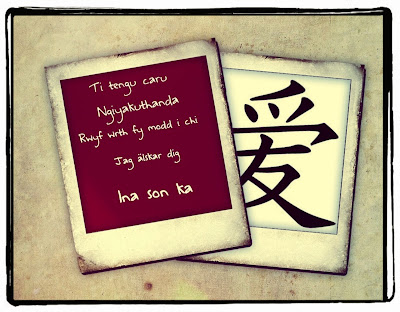 Ti tengu caru
Ngiyakuthanda
Rwyf wrth fy modd i chi
Jag älskar dig
Ina son ka
爱